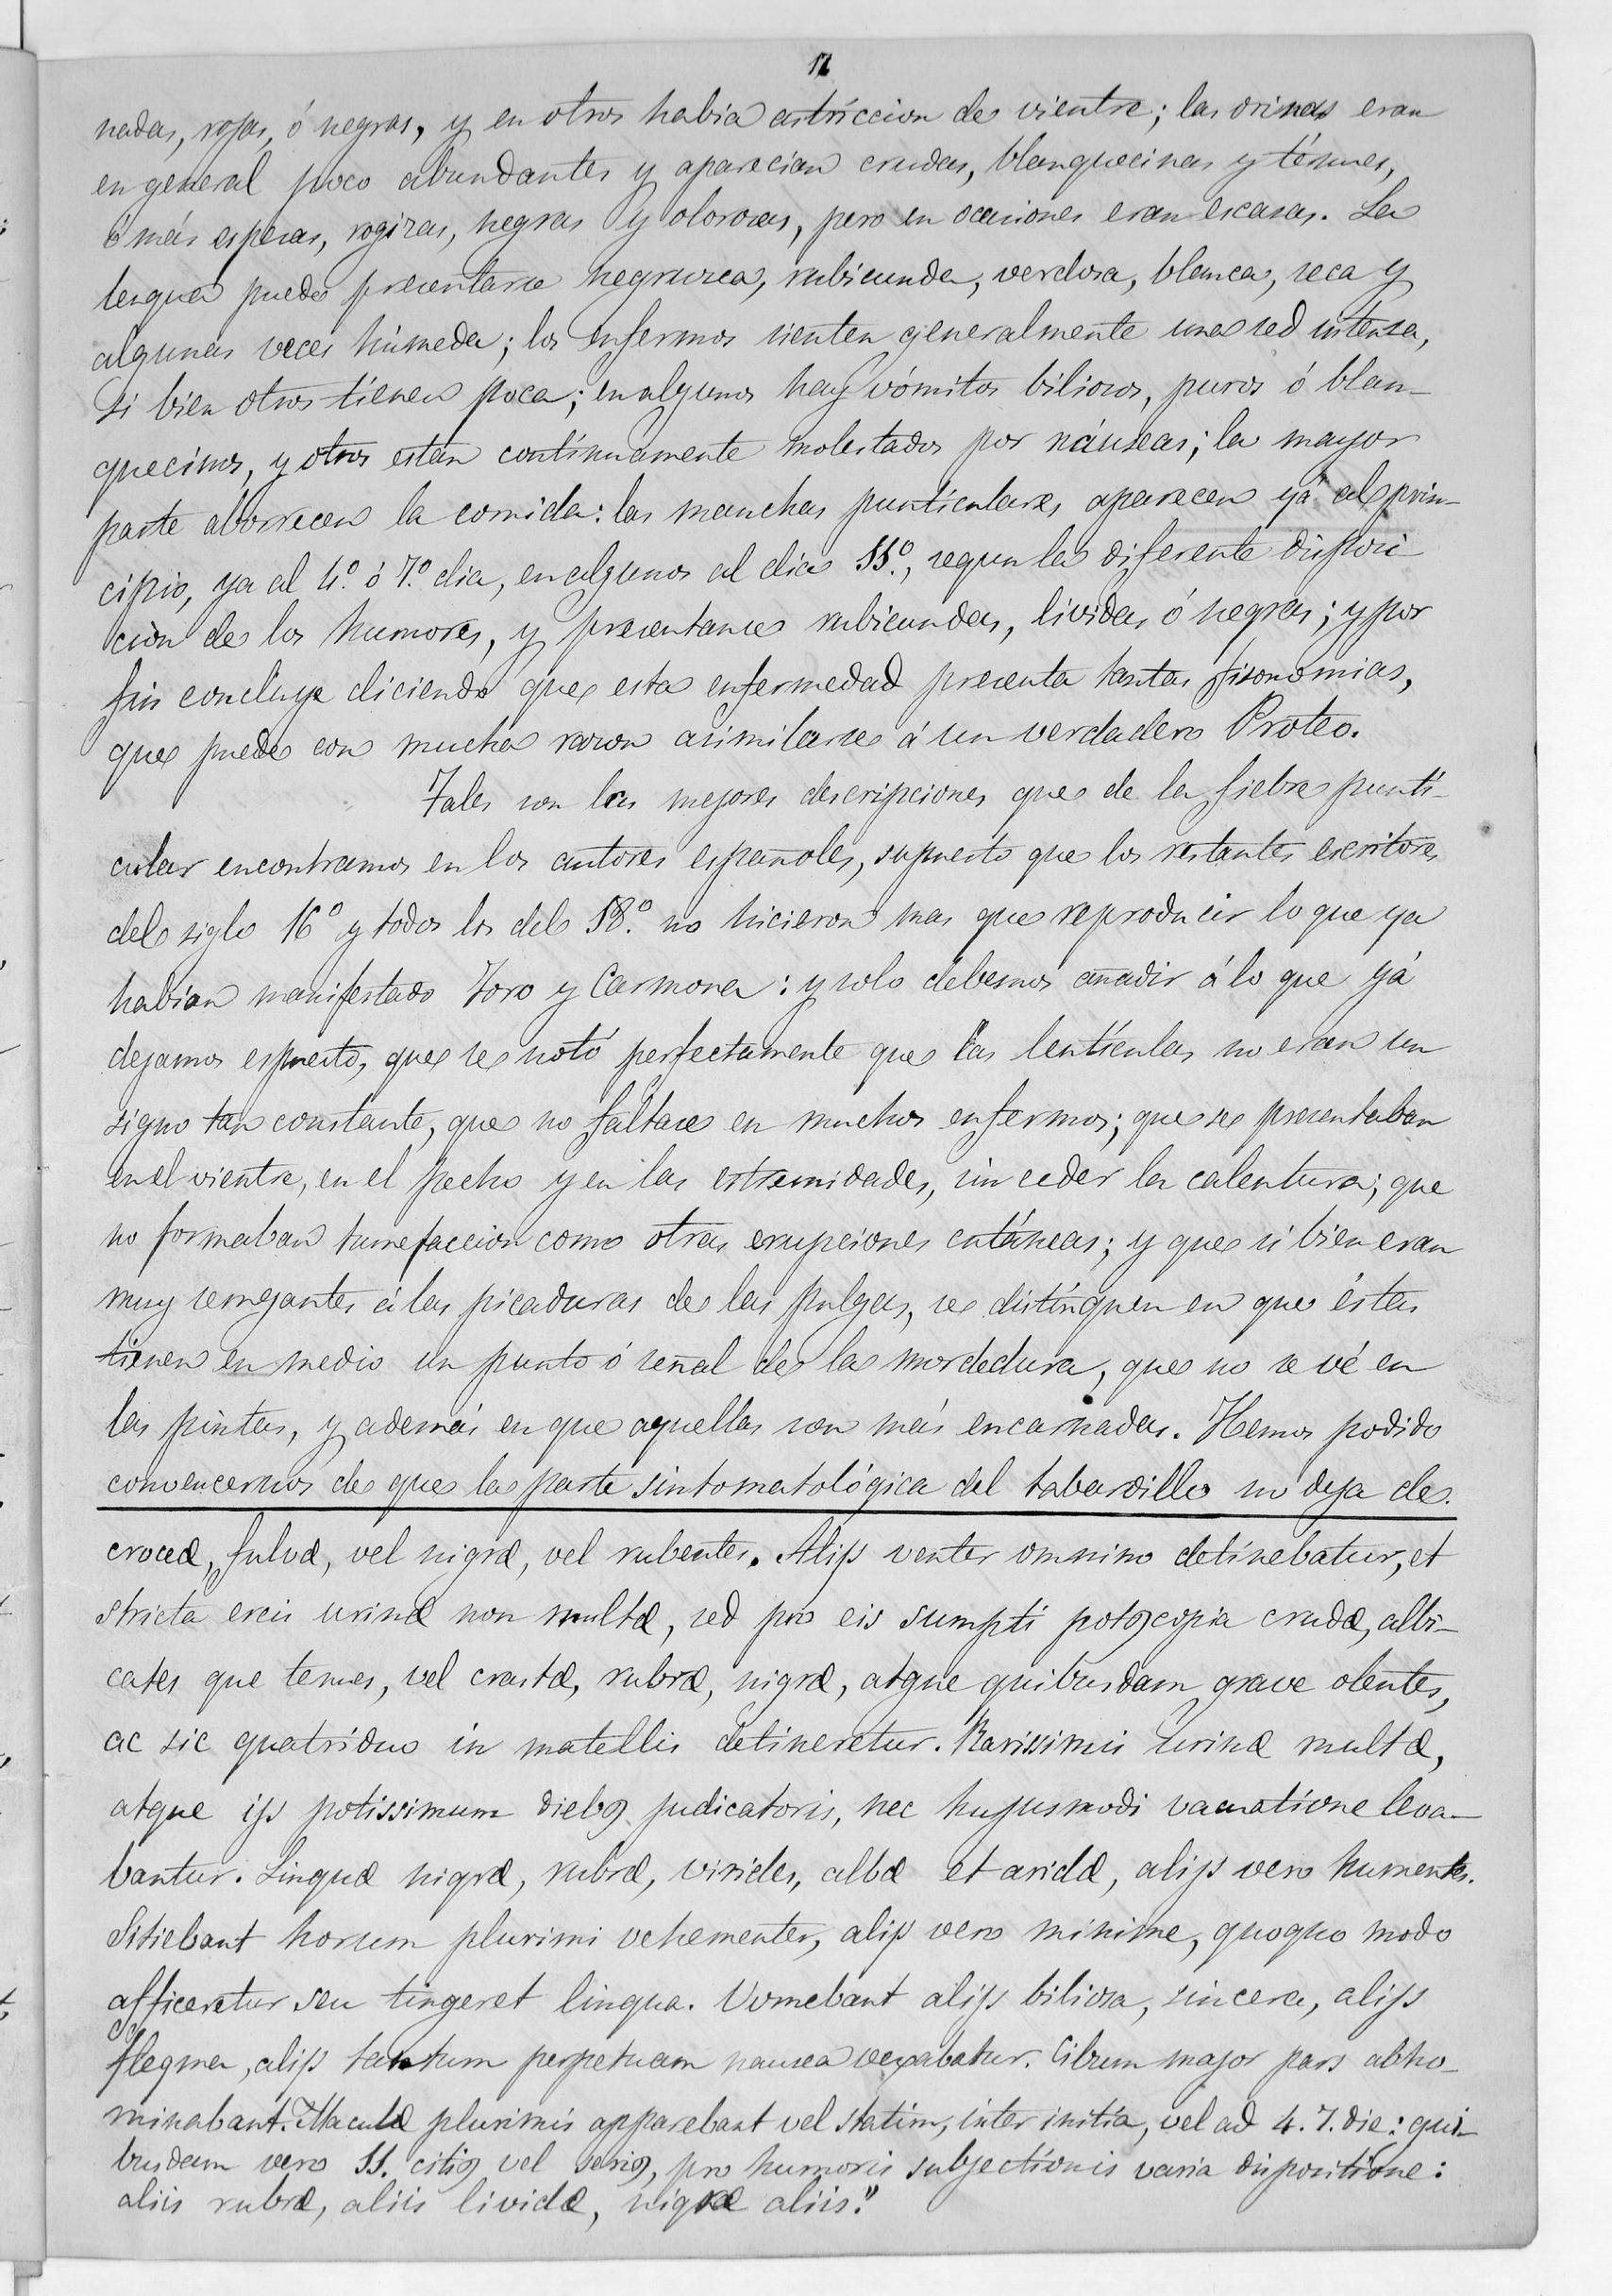 12
nadas, rojas, ó negras, y en otros habia astriccion de vientre; las orinas eran
en general poco abundantes y aparecian crudas, blanquecinas y ténues,
ó más espesas, rogizas, negras y olorosas, pero en ocasiones eran escasas. La
lengua puede presentarse negruzca, rubicunda, verdosa, blanca, seca y
algunas veces húmeda; los enfermos sienten generalmente una sed intensa,
si bien otros tienen poca; en algunos hay vómitos biliosos, puros ó blan-
quecinos, y otros están contínuamente molestados por náuseas; la mayor
parte aborrecen la comida: las manchas puntículares aparecen yá al prin-
cipio, ya al 4.º ó 7.º dia, en algunos al dia 11.º, segun la diferente disposi-
cion de los humores, y presentanse rubicundas, lividas ó negras; y por
fin concluye diciendo que esta enfermedad presenta tantas fisonomias,
que puede con mucha razon asimilarse á un verdadero Proteo.
Tales son las mejores descripciones que de la fiebre puntí-
cular encontramos en los autores españoles, supuesto que los restantes escritores
del siglo 16º y todos los del 18.º no hicieron mas que reproducir lo que ya
habian manifestado Toro y Carmona: y solo debemos añadir á lo que yá
dejamos espuesto, que se notó perfectamente que las lentículas no eran un
signo tan constante, que no faltase en muchos enfermos; que se presentaban
en el vientre, en el pecho y en las estremidades, sin ceder la calentura; que
no formaban tumefaccion como otras erupciones cutáneas; y que si bien eran
muy semejantes á las picaduras de las pulgas, se distínguen en que éstas
tienen en medio un punto ó señal de la mordedura, que no se vé en
las pintas, y además en que aquellas son más encarnadas. Hemos podido
convencernos de que la parte sintomatológica del tabardillo no deja de
croceæ, fulvæ, vel nigræ, vel rubentes. Alijs venter omnino detinebatur, et
stricta ercis urinæ non multæ, sed pro eis sumpti potꝯ copia crudæ, albi-
cates que tenues, vel crastæ, rubræ, nigræ, atque quibusdam grave olentes,
ac sic quatriduo in matellis detineretur. Rarissimis urinæ multæ,
atque ijs potissimum diebꝯ judicatoris, nec hujusmodi vacuatione leva-
bantur. Linguæ nigræ, rubræ, virides, albæ et aridæ, alijs vero humentes.
Sitiebant horum plurimi vehementer, alijs vero minime, quoquo modo
afficeretur seu tingeret lingua. Vomebant alijs biliosa, sincera, alijs
flegma, alijs tantum perpetuam nausea vexabatur. Cibum major pars abho-
minabant. Maculæ plurimis apparebant vel statim, inter initia, vel ad 4. 7. die: qui-
busdam vero 11. citiꝯ vel seriꝯ, pro humoris subjectionis varia dispositione:
aliis rubræ, aliis lividæ, nigræ aliis."